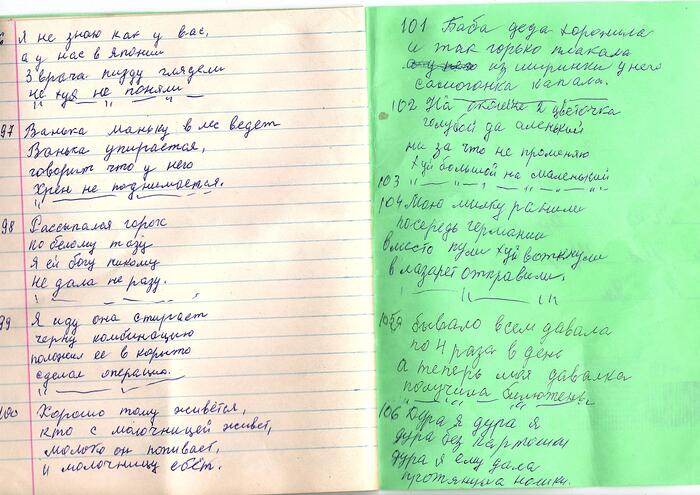 6 Я не знаю как у вас,
а у нас в Японии
3 врача пизду глядели
ни хуя не поняли
97 Ванька маньку в лес ведет
Ванька упирается,
говорит что у него
Хрен не поднимается.
98 Рассыпался горох
по белому тазу
Я ей богу никому
не дала не разу.
99 Я иду она стирает
черну комбинацию
положил ее в корыто
сделал операцию.
100 Хорошо тому живётся,
кто с молочницей живет,
молоко он попивает,
и молочницу ебёт.
101 Баба деда хоронила
и так горько плакала
из ширинки у него
самогонка капала.
102 На окошке 2 цветочка
голубой да аленький
ни за что не променяю
хуй большой на маленький
103
104 Мою милку ранили
посередь германии
вместо пули хуй воткнули
в лазарет отправили.
105 Я бывало всем давала
по 4 раза в день
а теперь моя давалка
получила бюлютень.
106 Дура я дура я
дура без картошки
дура я ему дала
протянула ножки.